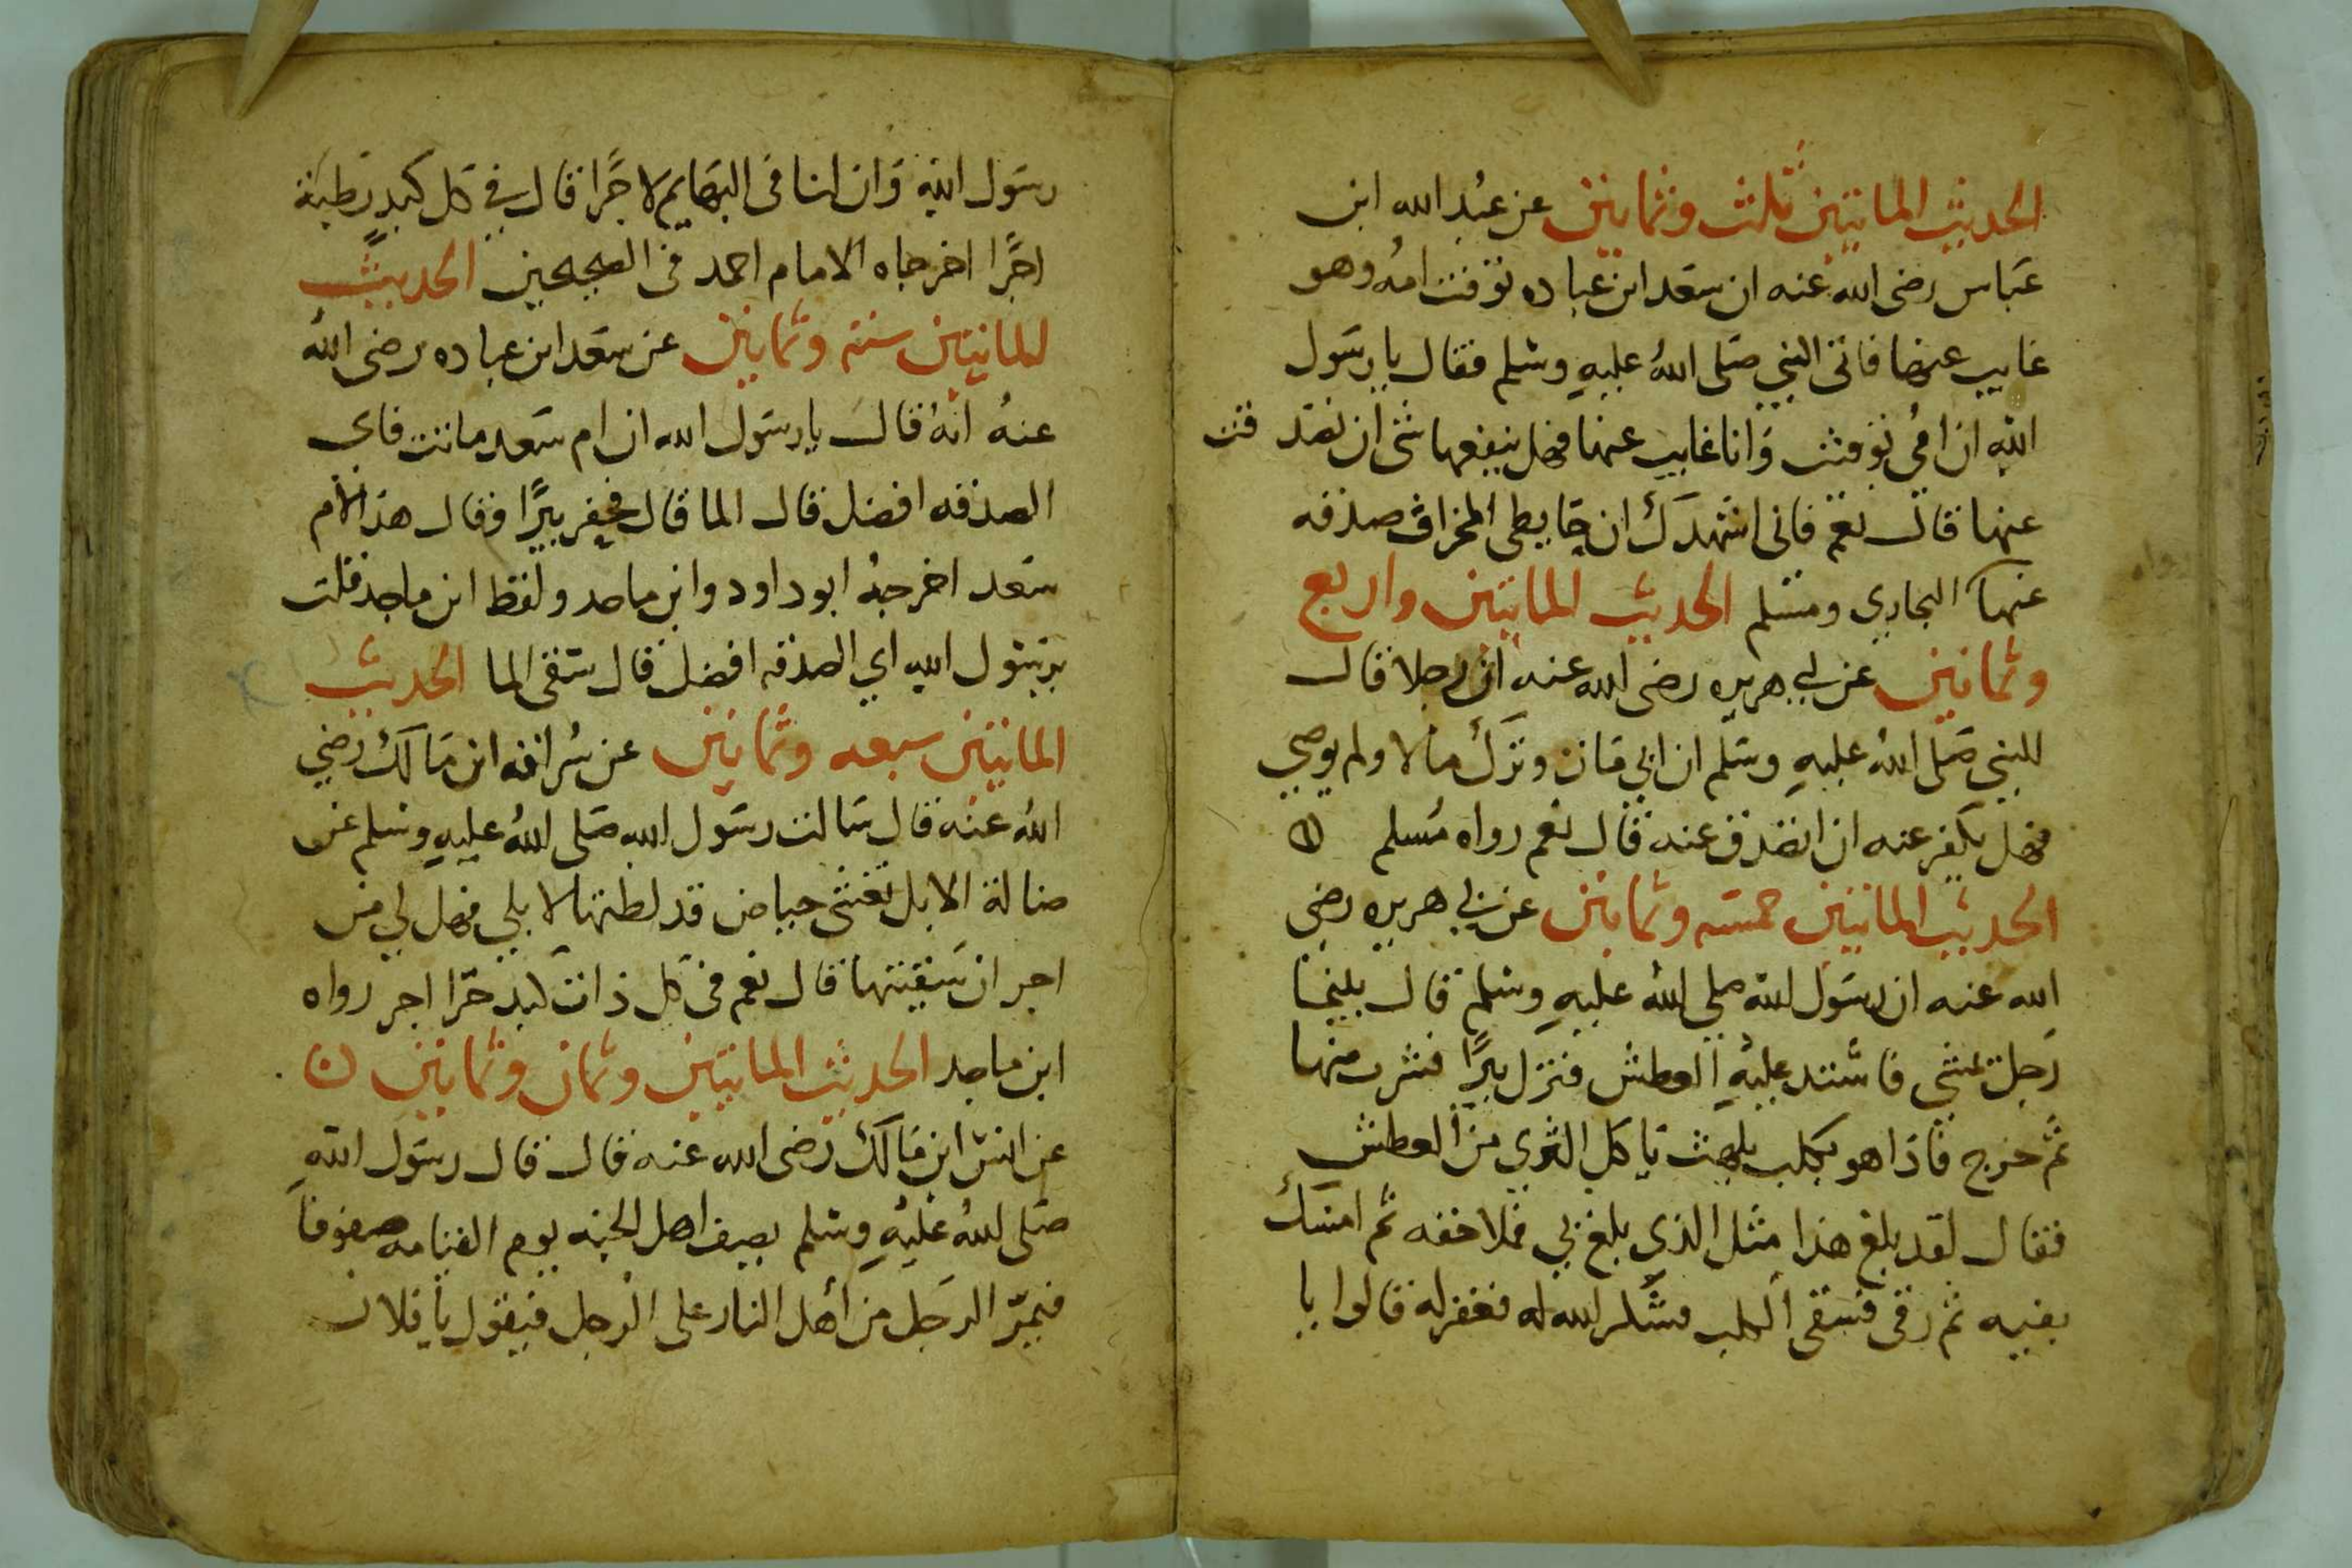 الحديث المايتين ثلث وثمانين عن عبد الله ابن
عباس رضى الله عنه ان سعد ابن عباده توفت امه وهو
غايب عنها فاتى النبي صلى الله عليه وسلم فقال يا رسول
الله ان امي توفت وانا غايب عنها فهل ينفعها شى ان تصد قت
عنها قال نعم فانى اشهدك ان حايطى المخراف صدقه
عنها البخاري ومسلم الحديث المايتين واربع
وثمانين عن ابي هريره رضى الله عنه ان رجلا قال
للنبي صلى الله عليه وسلم ان ابي مات وترك مالا ولم يوصي
فهل يكفر عنه ان اتصدق عنه قال نعم رواه مسلم
الحديث المايتين خمسه وثمانين عن ابي هريره رضي
الله عنه ان رسول الله صلي الله عليه وسلم قال بينما
رجل تمشي فاشتد عليه العطش فنزل بيرًا فشرب منها
ثم خرج فاذا هو بكلب يلهث ياكل الثري من العطش
فقال لقد بلغ هذا مثل الذي بلغ بي فملا خفه ثم امسك
بفيه ثم رقى فسقى الكلب فشكر الله له فغفر له قالوا يا
رسول الله وان لنا فى البهايم لاجرًا قال في كل كبد رطبة
اجرًا اخرجاه الامام احمد فى الصحيحين الحديث
المايتين سته وثمانين عن سعد ابن عباده رضى الله
عنه انه قال يا رسول الله ان ام سعد ماتت فاى
الصدقه افضل قال الما قال فحفر بيرًا وقال هذا لام
سعد اخرجه ابو داود وابن ماجه ولفظ ابن ماجه قلت
يرسول الله اي الصدقه افضل قال سقى الما الحديث
المايتين سبعه وثمانين عن سراقه ابن مالك رضي
الله عنه قال سالت رسول الله صلى الله عليه وسلم عن
ضالة الابل تغشى حياض قد لطتها لابلي فهل لي من
اجر ان سقيتها قال نعم فى كل ذات كبد حرا اجر رواه
ابن ماجه الحديث المايتين وثمان وثمانين
عن انس ابن مالك رضى الله عنه قال قال رسول الله
صلى الله عليه وسلم يصف اهل الجنه يوم القيامه صفوفا
فيمر الرجل من اهل النار على الرجل فيقول يا فلان